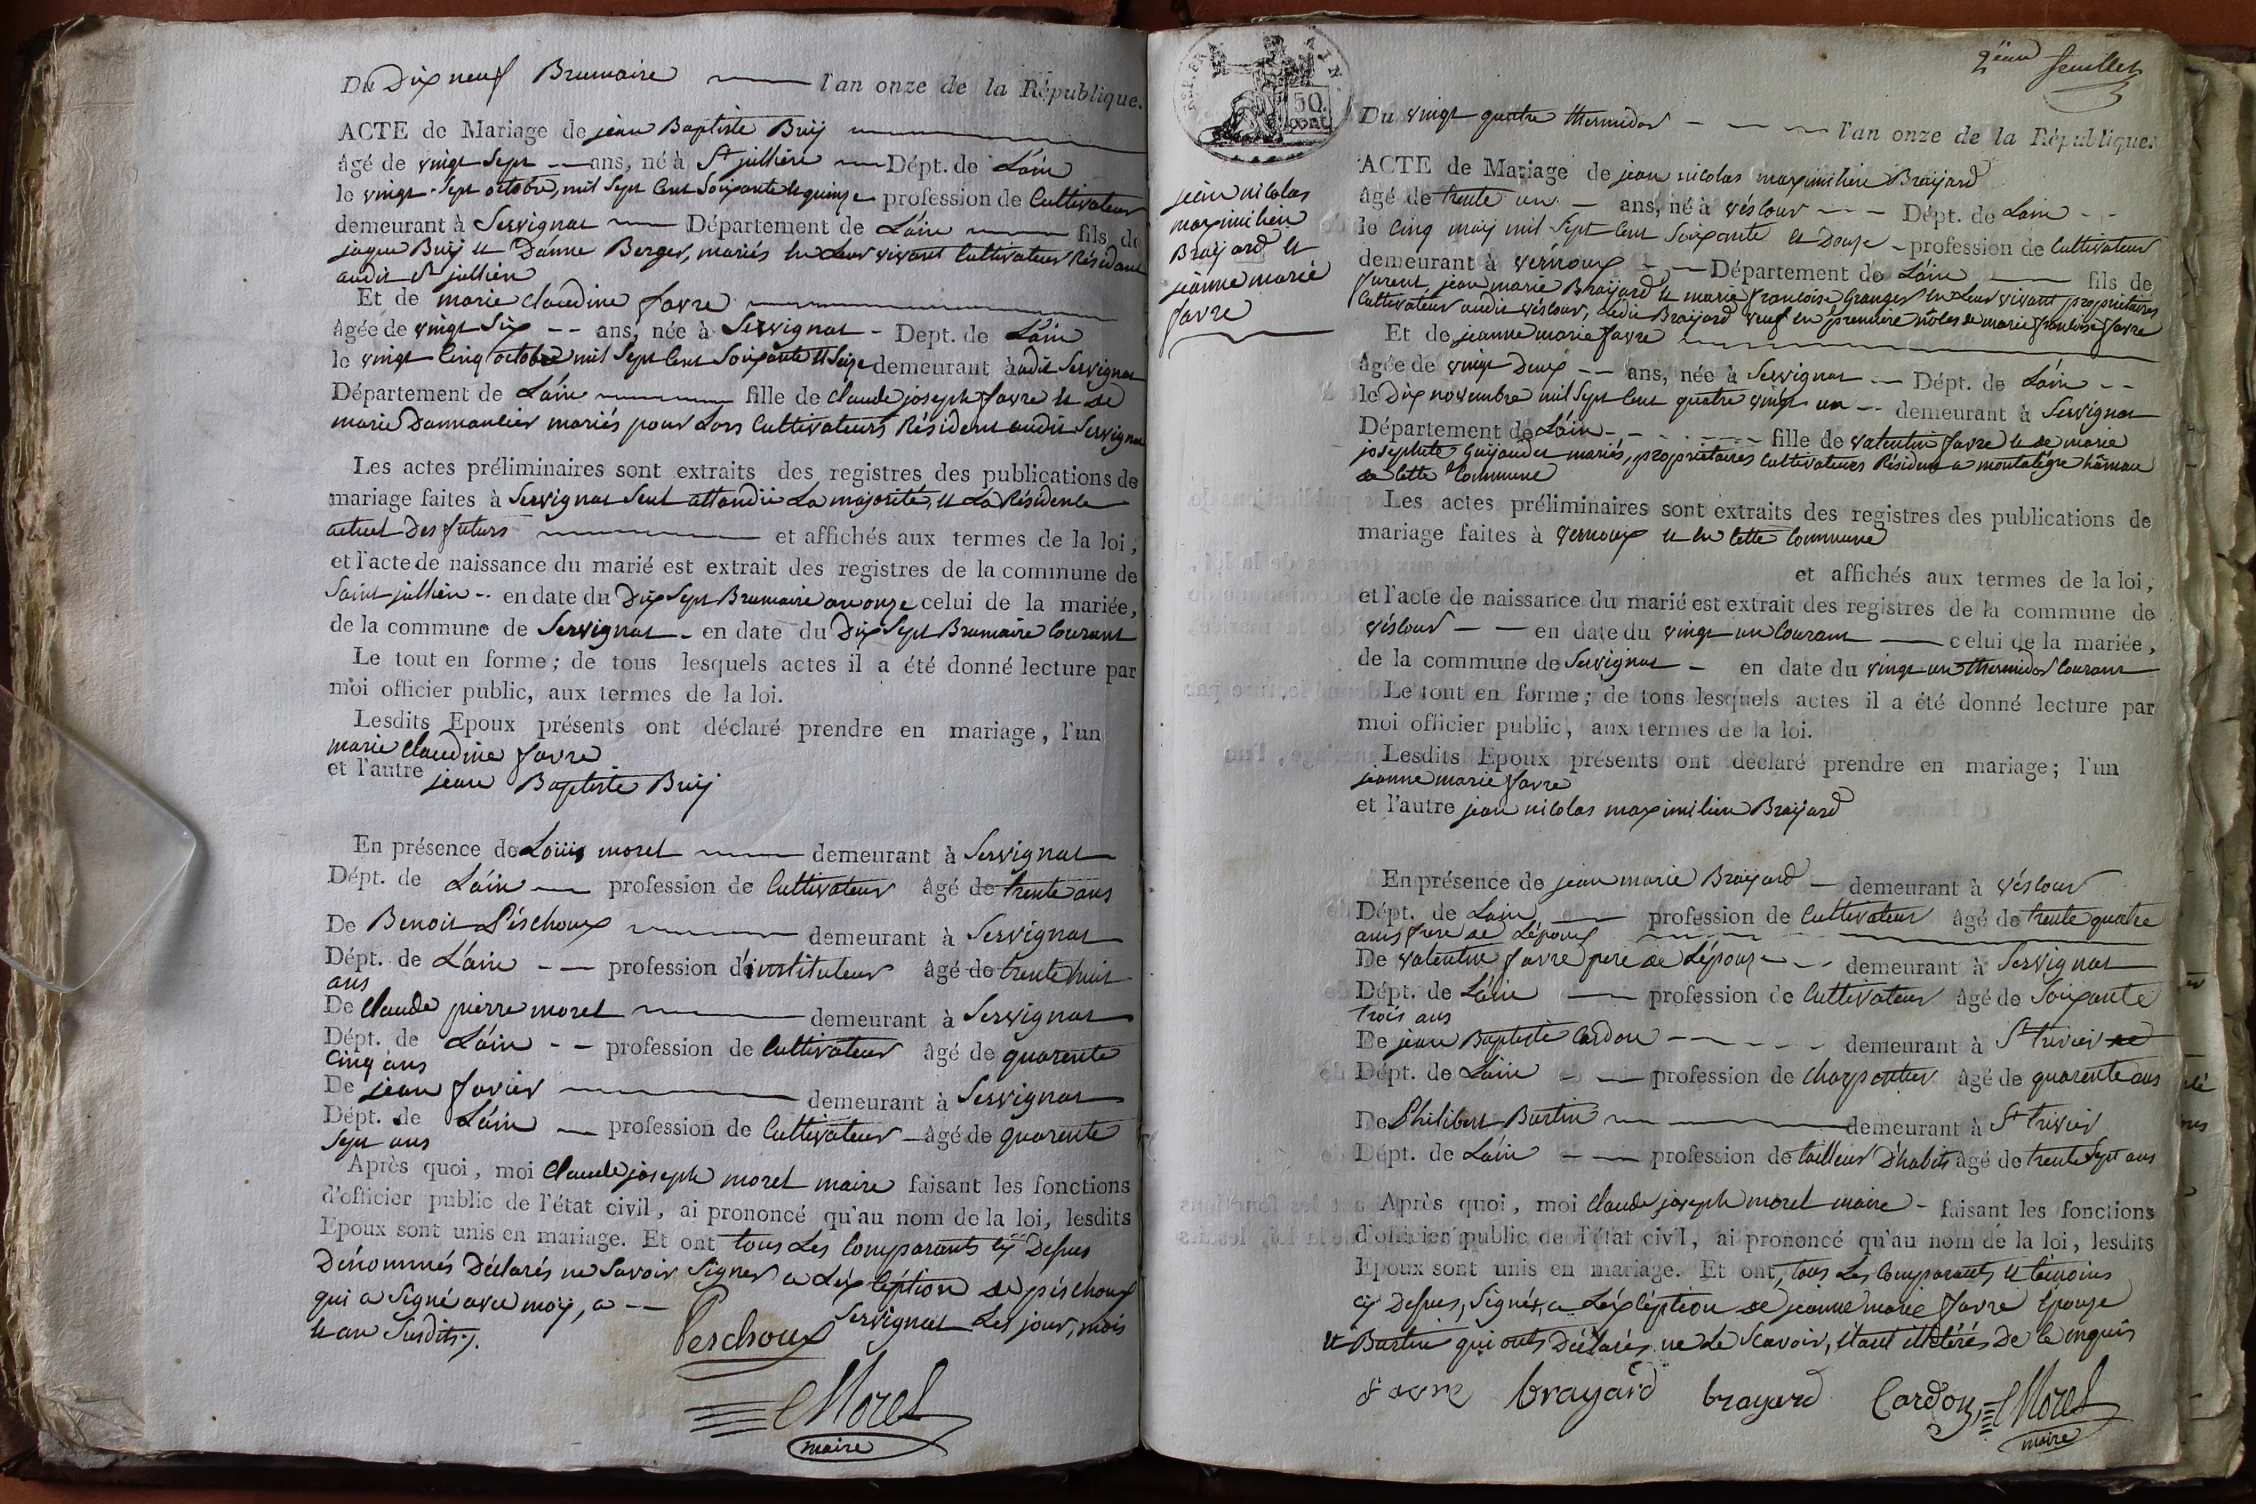 Du Dix neuf Brumaire l'an onze de la République.
ACTE de Mariage de jean Baptiste Buij
âgé de vingt Sept ans, né à St jullien Dépt. de L'ain
le vingt Sept octobre, mil Sept Cent Soixante et quinze profession de Cultivateur
demeurant à Servignat Département de L'ain fils de
jaque Buij et Danne Berger, mariés en Leur vivant Cultivateur Résidant
audit St jullien
Et de marie claudine favre
âgée de vingt Six ans, née à Servignat Dept. de L'ain
le vingt Cinq octobre mil Sept Cent Soixante et Seize demeurant à audit Servignat
Département de L'ain fille de claude joseph favre et de
marie Dannanlier mariés pour Lors Cultivateurs Résident audit Servignat
Les actes préliminaires sont extraits des registres des publications de
mariage faites à Servignat Seul attandü La majorité, et La Résidence
actuel Des futurs et affichés aux termes de la loi,
et l'acte de naissance du marié est extrait des registres de la commune de
Saint jullien en date du Dix Sept Brumaire an onze celui de la mariée,
de la commune de Servignat en date du Dix Sept Brumaire Courant
Le tout en forme ; de tous lesquels actes il a été donné lecture par
moi officier public, aux termes de la loi.
Lesdits Epoux présents ont déclaré prendre en mariage, l'un
marie claudine favre
et l'autre jean Baptiste Buij
En présence de Loüis morel demeurant à Servignat
Dépt. de L'ain profession de Cultivateur âgé de trente ans
De Benoit Péschoux demeurant à Servignat
Dépt. de L'ain profession d'instituteur âgé de trente huit
ans
De claude pierre morel demeurant à Servignat
Dépt. de L'ain profession de Cultivateur âgé de quarente
Cinq ans
De jean favier demeurant à Servignat
Dépt. de L'ain profession de Cultivateur âgé de quarente
Sept ans
Après quoi, moi claude joseph morel maire faisant les fonctions
d'officier public de l'état civil, ai prononcé qu'au nom de la loi, lesdits
Epoux sont unis en mariage. Et ont tous Les Comparants cy Desus
Dénommés Déclarés ne Savoir Signer a L'éxcéption de péschoux
qui a Signé avec moy, a Servignat Les jour, mois
et an Susdits.
Peschoux
Morel
maire
2ème feuillet
50 cent
jean nicolas
maximilien
Braÿard et
jeanne marie
favre
Du vingt quatre thermidor l'an onze de la République.
ACTE de Mariage de jean nicolas maximilien Braÿard
âgé de trente un ans, né à véscour Dépt. de Lain
le Cinq may mil Sept Cent Soixante et Douze profession de Cultivateur
demeurant à vérnoux Département de L'ain fils de
furent, jean marie Braÿard et marie françoise Granger en Leur vivant propriétaires
Cultivateur audit véscour, Ledit Braÿard veuf en première nôces de marie françoise favre
Et de jeanne marie favre
âgée de vingt Deux ans, née à Servignat Dépt. de L'ain
le Dix novembre mil Sept Cent quatre vingt un demeurant à Servignat
Département de L'ain fille de valentin favre et de marie
josephte Guÿaudet mariés, propriétaires Cultivateurs Résident a montalégre hâmeau
de Cette Commune
Les actes préliminaires sont extraits des registres des publications de
mariage faites à vernoux et en Cette Commune
et affichés aux termes de la loi,
et l'acte de naissance du marié est extrait des registres de la commune de
véscour en date du vingt un Courant celui de la mariée,
de la commune de Servignat en date du vingt un thermidor Courant
Le tout en forme ; de tous lesquels actes il a été donné lecture par
moi officier public, aux termes de la loi.
Lesdits Epoux présents ont déclaré prendre en mariage ; l'un
jeanne marie favre
et l'autre jean nicolas maximilien Braÿard
En présence de jean marie Braÿard demeurant à véscour
Dépt. de Lain profession de Cultivateur âgé de trente quatre
ans frere de L'époux
De valentin favre pere de L'épouze demeurant à Servignat
Dépt. de L'ain profession de Cultivateur âgé de Soixante
trois ans
De jean Baptiste Cardon demeurant à St trivier de
Dépt. de Lain profession de charpentier âgé de quarente ans
De Philibert Burtin demeurant à St trivier
Dépt. de L'ain profession de tailleur D'habits âgé de trente Sept ans
Après quoi, moi claude joseph morel maire faisant les fonctions
d'officier public de l'état civil, ai prononcé qu'au nom de la loi, lesdits
Epoux sont unis en mariage. Et ont, tous Les Comparants et témoins
cy Desus, Signés a L'éxcéption de jeanne marie favre Epouze
et Burtin qui onts Déclarés ne Le Scavoir, étant illetérés De ce enquis
favre brayard brayard Cardon Morel
maire